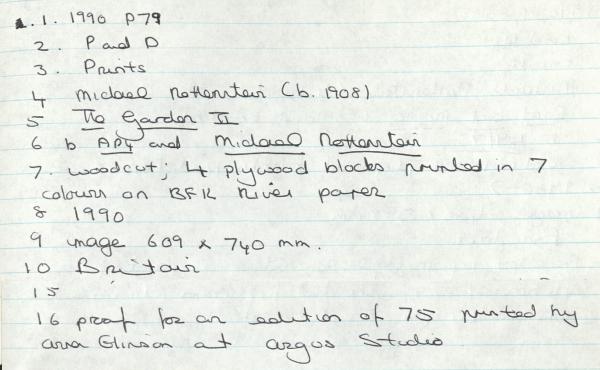 1. 1990 P79
2. P and D
3. Prints
4 Michael Rothenstein (b. 1908)
5 The Garden II
6 b AP4 and Michael Rothenstein
7. woodcut; 4 plywood blocks printed in 7
colours on BFK River paper
8 1990
9 image 609 x 740 mm.
10 Britain
15
16 proof for an edition of 75 printed by
at Argus Studio